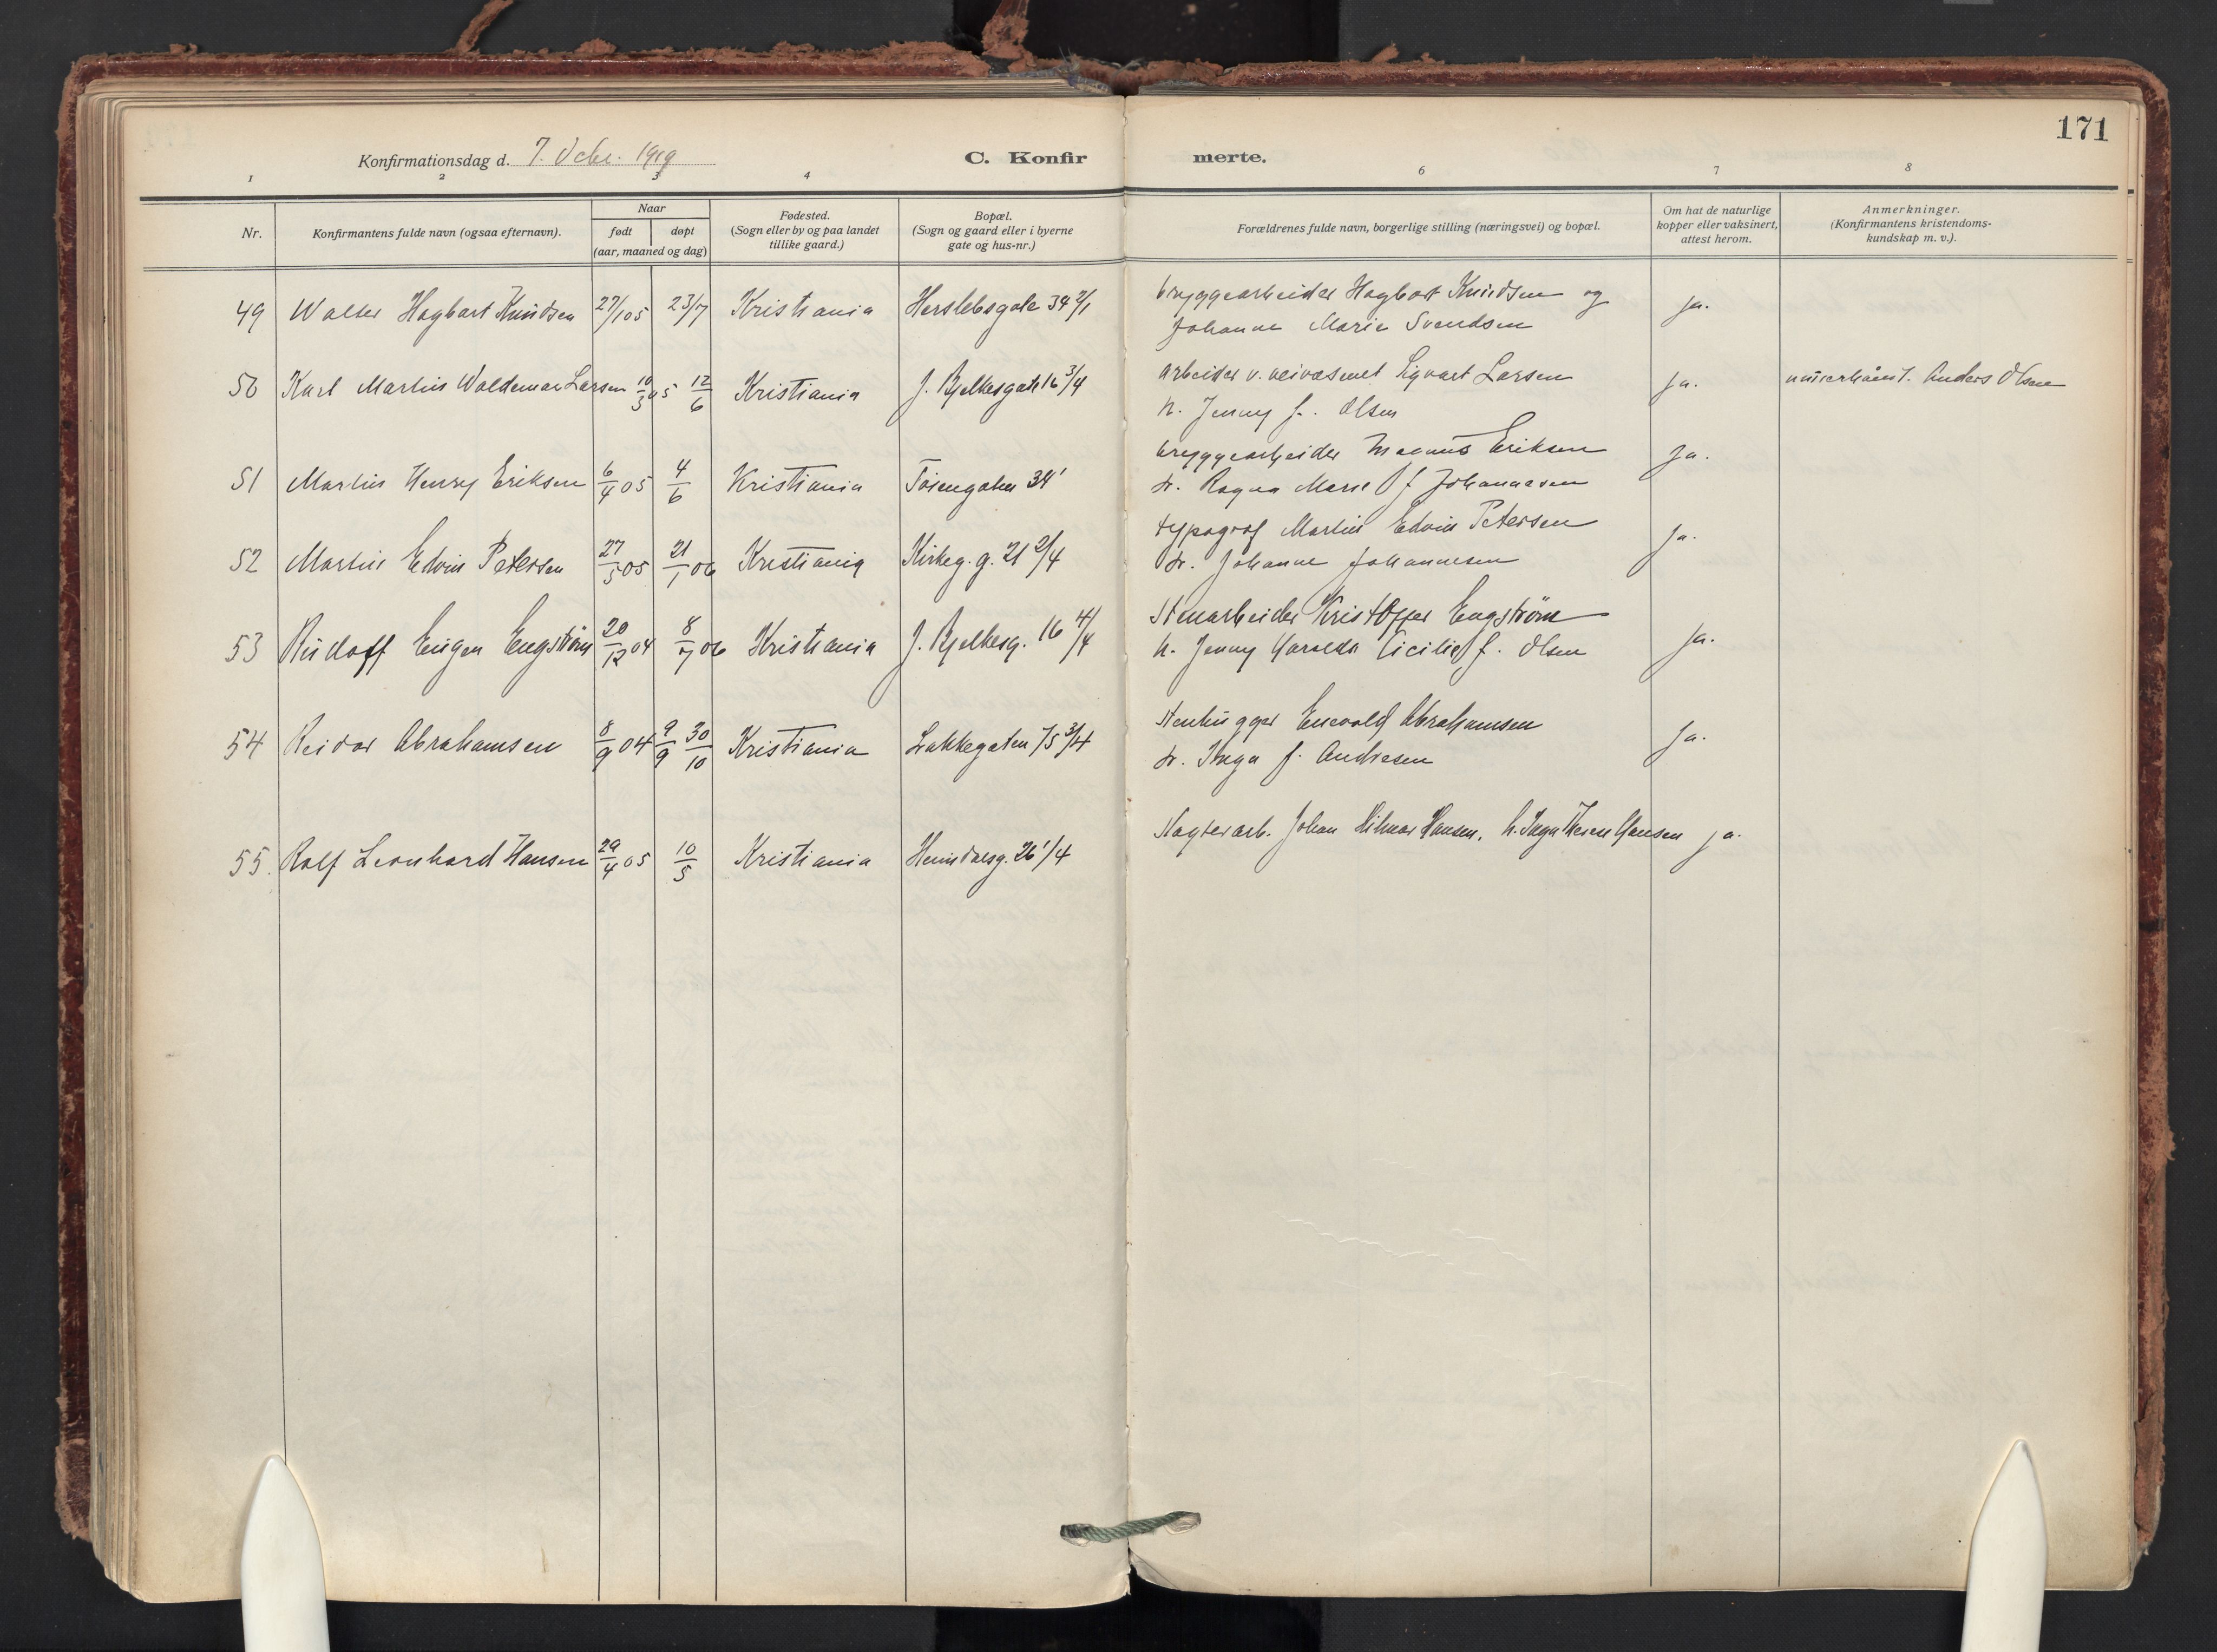 171
Konfirmationsdag d. 7. Octbr. 1919
C. Konfir merte.
1 2 3 4 6 7 8
Nr.
Konfirmantens fulde navn (ogsaa efternavn).
Naar
født døpt
(aar, maaned og dag)
Fødested.
(Sogn eller by og paa landet
tillike gaard.)
Bopæl.
(Sogn og gaard eller i byerne
gate og hus-nr.)
Forældrenes fulde navn, borgerlige stilling (næringsvei) og bopæl.
Om hat de naturlige
kopper eller vaksinert,
attest herom.
Anmerkninger.
(Konfirmantens kristendoms-
kundskap m. v.).
49 Walter Hagbart Knudsen 27/1 05 23/7 Kristiania Herslebsgate 34 2/1 bryggearbeider Hagbart Knudsen og ja.
Johanne Marie Svendsen
50 Karl Martin Waldemar Larsen 10/3 05 12/6 Kristiania J. Bjelkesgate 16 3/4 arbeider v. veivæsenet Sigvart Larsen ja. Anders Olsen
h. Jenny f. Olsen
51 Martin Henry Eriksen 6/4 05 4/6 Kristiania Tøiengaten 34' bryggearbeider Magnus Eriksen ja.
h. Ragna Marie f Johannesen
52 Martin Edvin Petersen 27/5 05 21/1 06 Kristiania Kirkeg. g. 21 2/4 typograf Martin Edvin Petersen ja.
h. Johanne Johannesen
53 Rudolf Eugen Engstrøm 20/12 04 8/7 06 Kristiania J. Bjelkesg. 16 4/4 Stenarbeider Kristoffer Engström ja.
h. Jenny Haralda Cicilie f. Olsen
54 Reidar Abrahamsen 8/9 04 9/9 30/10 Kristiania Lakkegaten 75 3/4 Stenhugger Enevold Abrahamsen ja.
h. Inga f. Andresen
55. Rolf Leonhard Hansen 29/4 05 10/5 Kristiania Heimdalsg. 26 1/4 Slagterarb. Johan Hilmar Hansen, h. Inga Therese Hansen ja.